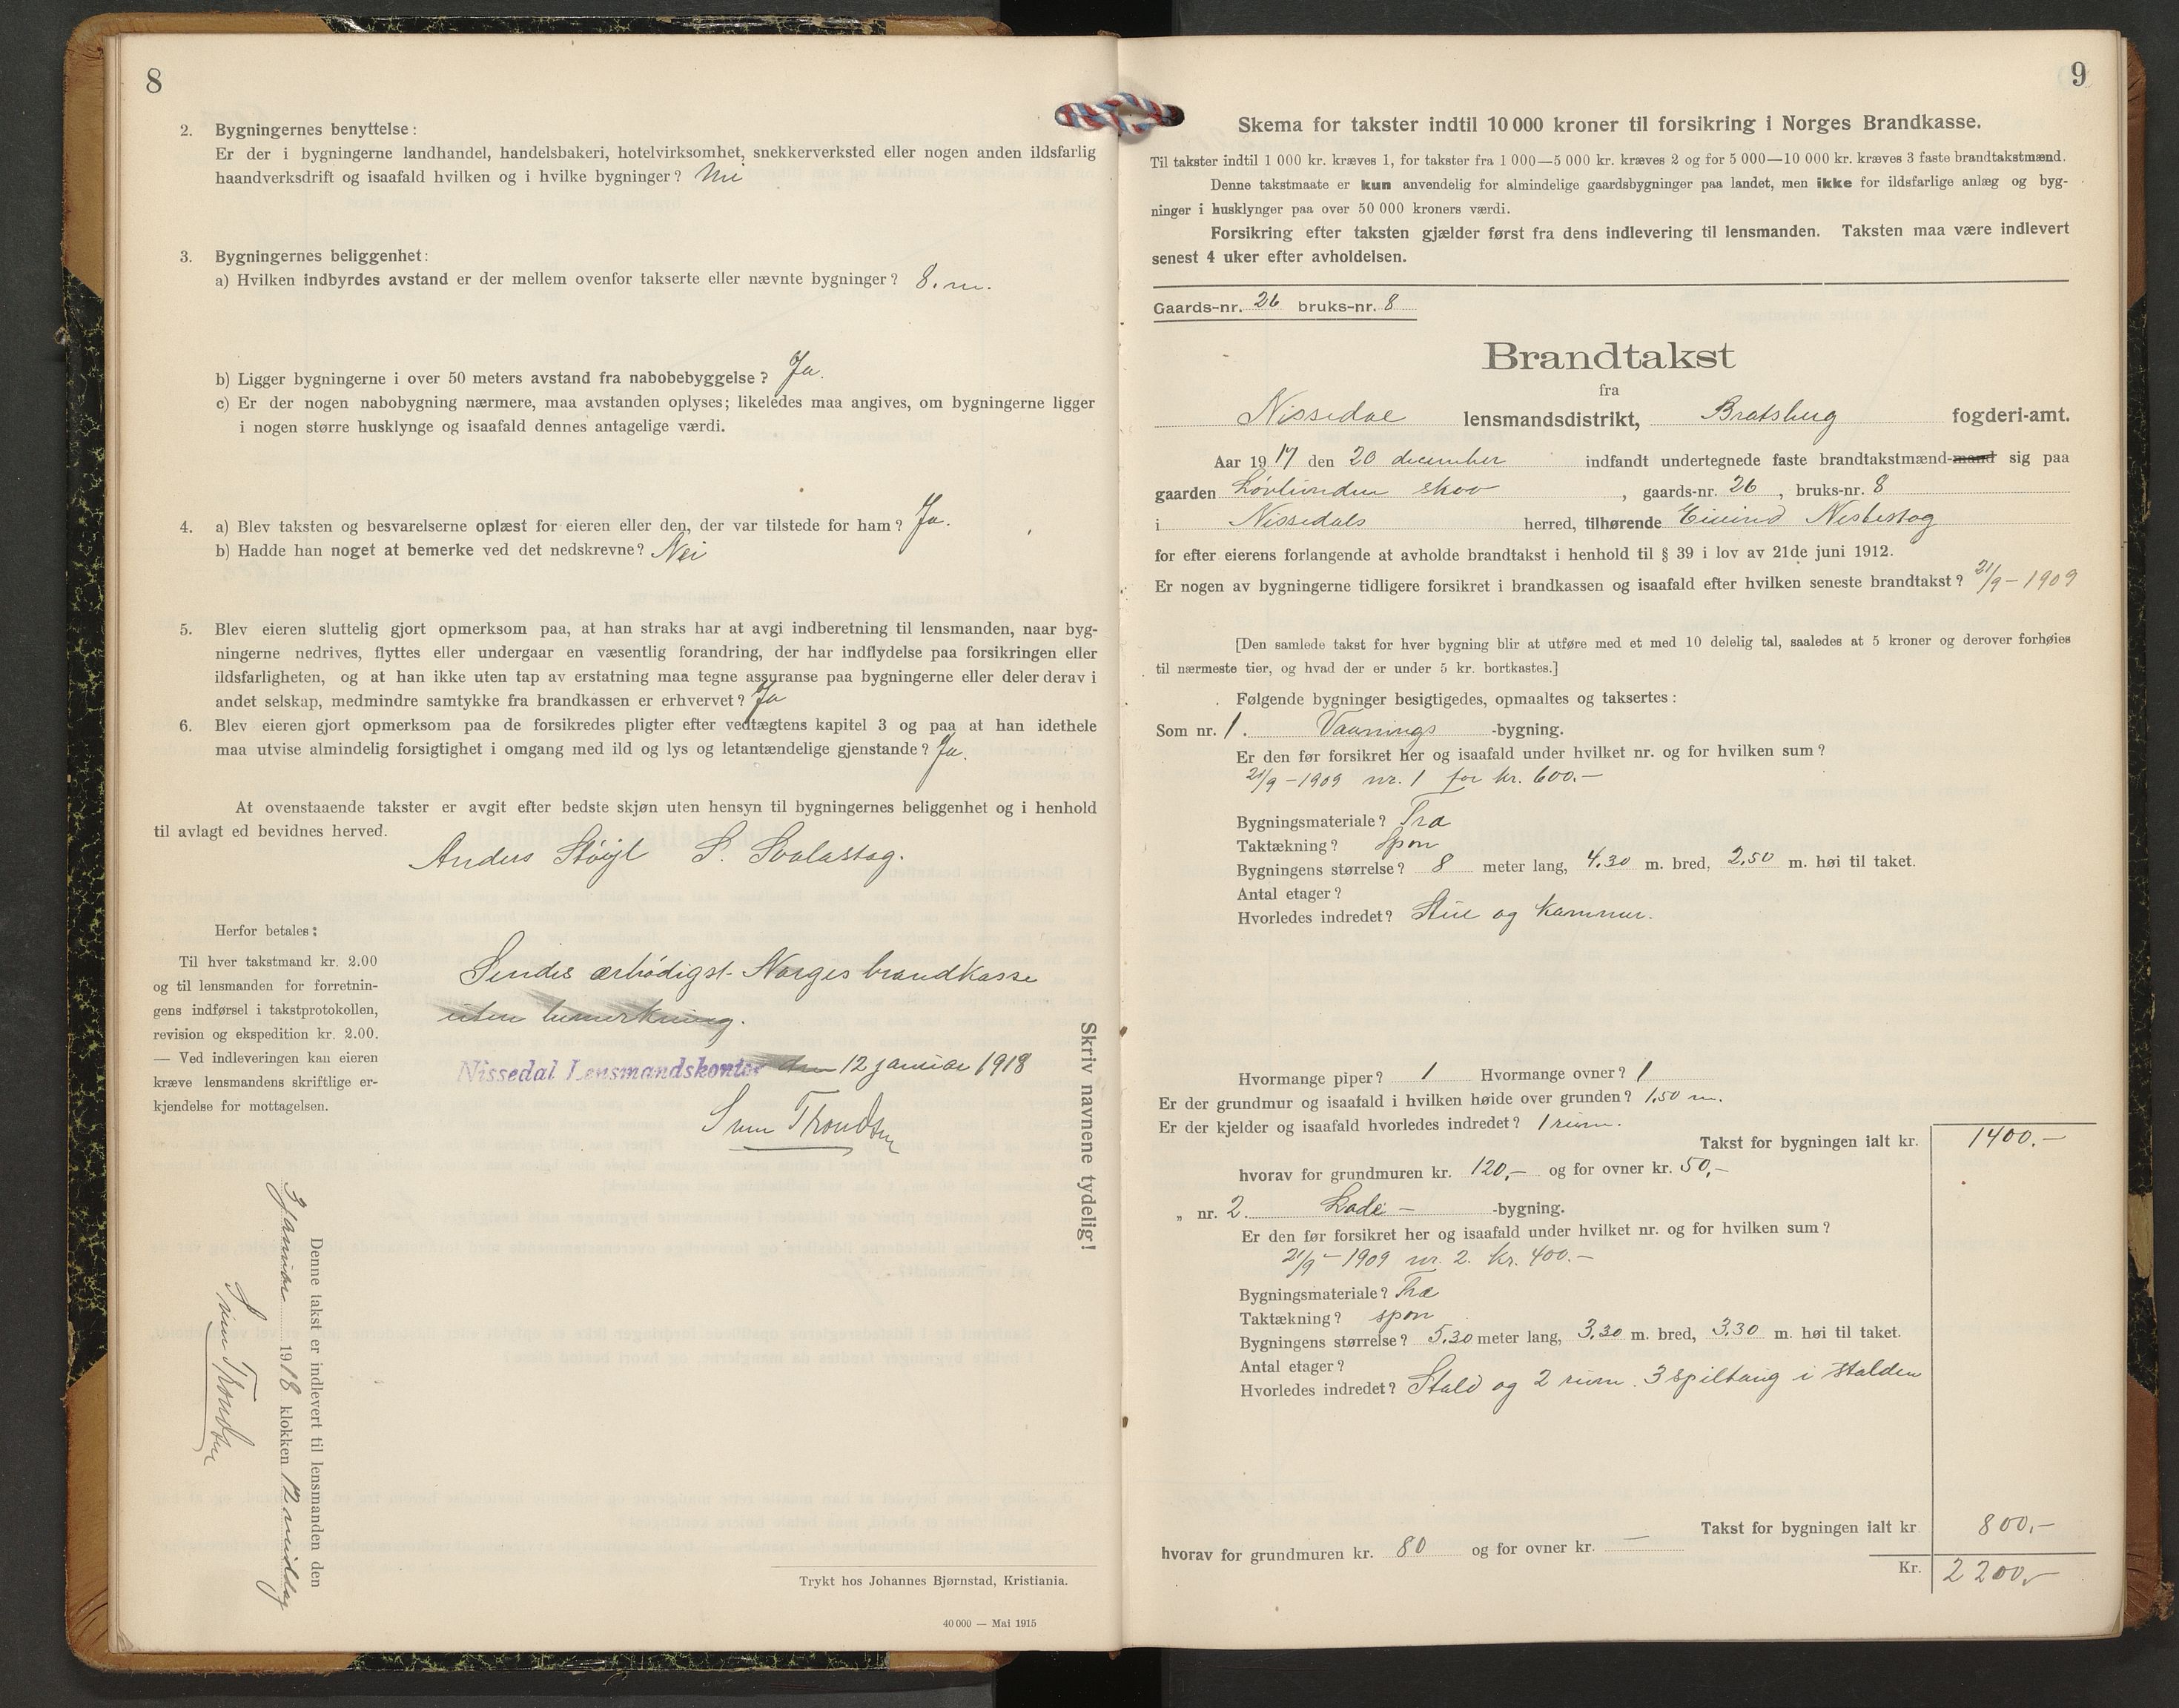 8
2. Bygningernes benyttelse:
Er der i bygningerne landhandel, handelsbakeri, hotelvirksomhet, snekkerverksted eller nogen anden ildsfarlig
haandverksdrift og isaafald hvilken og i hvilke bygninger? Nei
3. Bygningernes beliggenhet:
a) Hvilken indbyrdes avstand er der mellem ovenfor takserte eller nævnte bygninger? 8. m.
b) Ligger bygningerne i over 50 meters avstand fra nabobebyggelse? Ja.
c) Er der nogen nabobygning nærmere, maa avstanden oplyses; likeledes maa angives, om bygningerne ligger
i nogen større husklynge og isaafald dennes antagelige værdi.
4. a) Blev taksten og besvarelserne oplæst for eieren eller den, der var tilstede for ham? Ja.
b) Hadde han noget at bemerke ved det nedskrevne? Nei
5. Blev eieren sluttelig gjort opmerksom paa, at han straks har at avgi indberetning til lensmanden, naar byg-
ningerne nedrives, flyttes eller undergaar en væsentlig forandring, der har indflydelse paa forsikringen eller
ildsfarligheten, og at han ikke uten tap av erstatning maa tegne assuranse paa bygningerne eller deler derav i
andet selskap, medmindre samtykke fra brandkassen er erhvervet? Ja
6. Blev eieren gjort opmerksom paa de forsikredes pligter efter vedtægtens kapitel 3 og paa at han idethele
maa utvise almindelig forsigtighet i omgang med ild og lys og letantændelige gjenstande? Ja.
At ovenstaaende takster er avgit efter bedste skjøn uten hensyn til bygningernes beliggenhet og i henhold
til avlagt ed bevidnes herved.
Anders Støyl S. Svalastog.
Herfor betales:
Til hver takstmand kr. 2.00
og til lensmanden for forretnin-
gens indførsel i takstprotokollen,
revision og ekspedition kr. 2.00.
— Ved indleveringen kan eieren
kræve lensmandens skriftlige er-
kjendelse for mottagelsen.
Sendes ærbödigst Norges brandkasse
uten bemerkning.
Nissedal Lensmandskontor den 12 januar 1918
Sven Throndsen
Skriv navnene tydelig!
Denne takst er indlevert til lensmanden den
3 januar 1918 klokken 12 middag
Sven Throndsen
Trykt hos Johannes Bjørnstad, Kristiania.
40 000 — Mai 1915
9
Skema for takster indtil 10 000 kroner til forsikring i Norges Brandkasse.
Til takster indtil 1 000 kr. kræves 1, for takster fra 1 000—5 000 kr. kræves 2 og for 5 000—10 000 kr. kræves 3 faste brandtakstmænd.
Denne takstmaate er kun anvendelig for almindelige gaardsbygninger paa landet, men ikke for ildsfarlige anlæg og byg-
ninger i husklynger paa over 50 000 kroners værdi.
Forsikring efter taksten gjælder først fra dens indlevering til lensmanden. Taksten maa være indlevert
senest 4 uker efter avholdelsen.
Gaards-nr. 26 bruks-nr. 8
Brandtakst
fra
Nissedal lensmandsdistrikt, Bratsberg fogderi-amt.
Aar 1917 den 20 december indfandt undertegnede faste brandtakstmænd-mand sig paa
gaarden Lövlunden skov, gaards-nr. 26, bruks-nr. 8
i Nissedals herred, tilhørende Eivind Nesbestog
for efter eierens forlangende at avholde brandtakst i henhold til § 39 i lov av 21de juni 1912.
Er nogen av bygningerne tidligere forsikret i brandkassen og isaafald efter hvilken seneste brandtakst? 21/9 - 1909
[Den samlede takst for hver bygning blir at utføre med et med 10 delelig tal, saaledes at 5 kroner og derover forhøies
til nærmeste tier, og hvad der er under 5 kr. bortkastes.]
Følgende bygninger besigtigedes, opmaaltes og taksertes:
Som nr. 1. Vaanings -bygning.
Er den før forsikret her og isaafald under hvilket nr. og for hvilken sum?
21/9 - 1909 nr. 1 for kr. 600.-
Bygningsmateriale? Træ
Taktækning? Spon
Bygningens størrelse? 8 meter lang, 4.30 m. bred, 2.50 m. høi til taket.
Antal etager?
Hvorledes indredet? Stue og kammer.
Hvormange piper? 1 Hvormange ovner? 1
Er der grundmur og isaafald i hvilken høide over grunden? 1,50 m.
Er der kjelder og isaafald hvorledes indredet? 1 rum.
Takst for bygningen ialt kr. 1400.-
hvorav for grundmuren kr. 120,- og for ovner kr. 50,-
„ nr. 2. Lade - -bygning.
Er den før forsikret her og isaafald under hvilket nr. og for hvilken sum?
21/9 - 1909 nr. 2. kr. 400.-
Bygningsmateriale? Træ
Taktækning? spon
Bygningens størrelse? 5.30 meter lang, 3.30 m. bred, 3.30 m. høi til taket.
Antal etager?
Hvorledes indredet? Stald og 2 rum. 3 spiltaug i stalden
Takst for bygningen ialt kr 800,-
hvorav for grundmuren kr. 80 og for ovner kr. —
Kr. 2 200,-